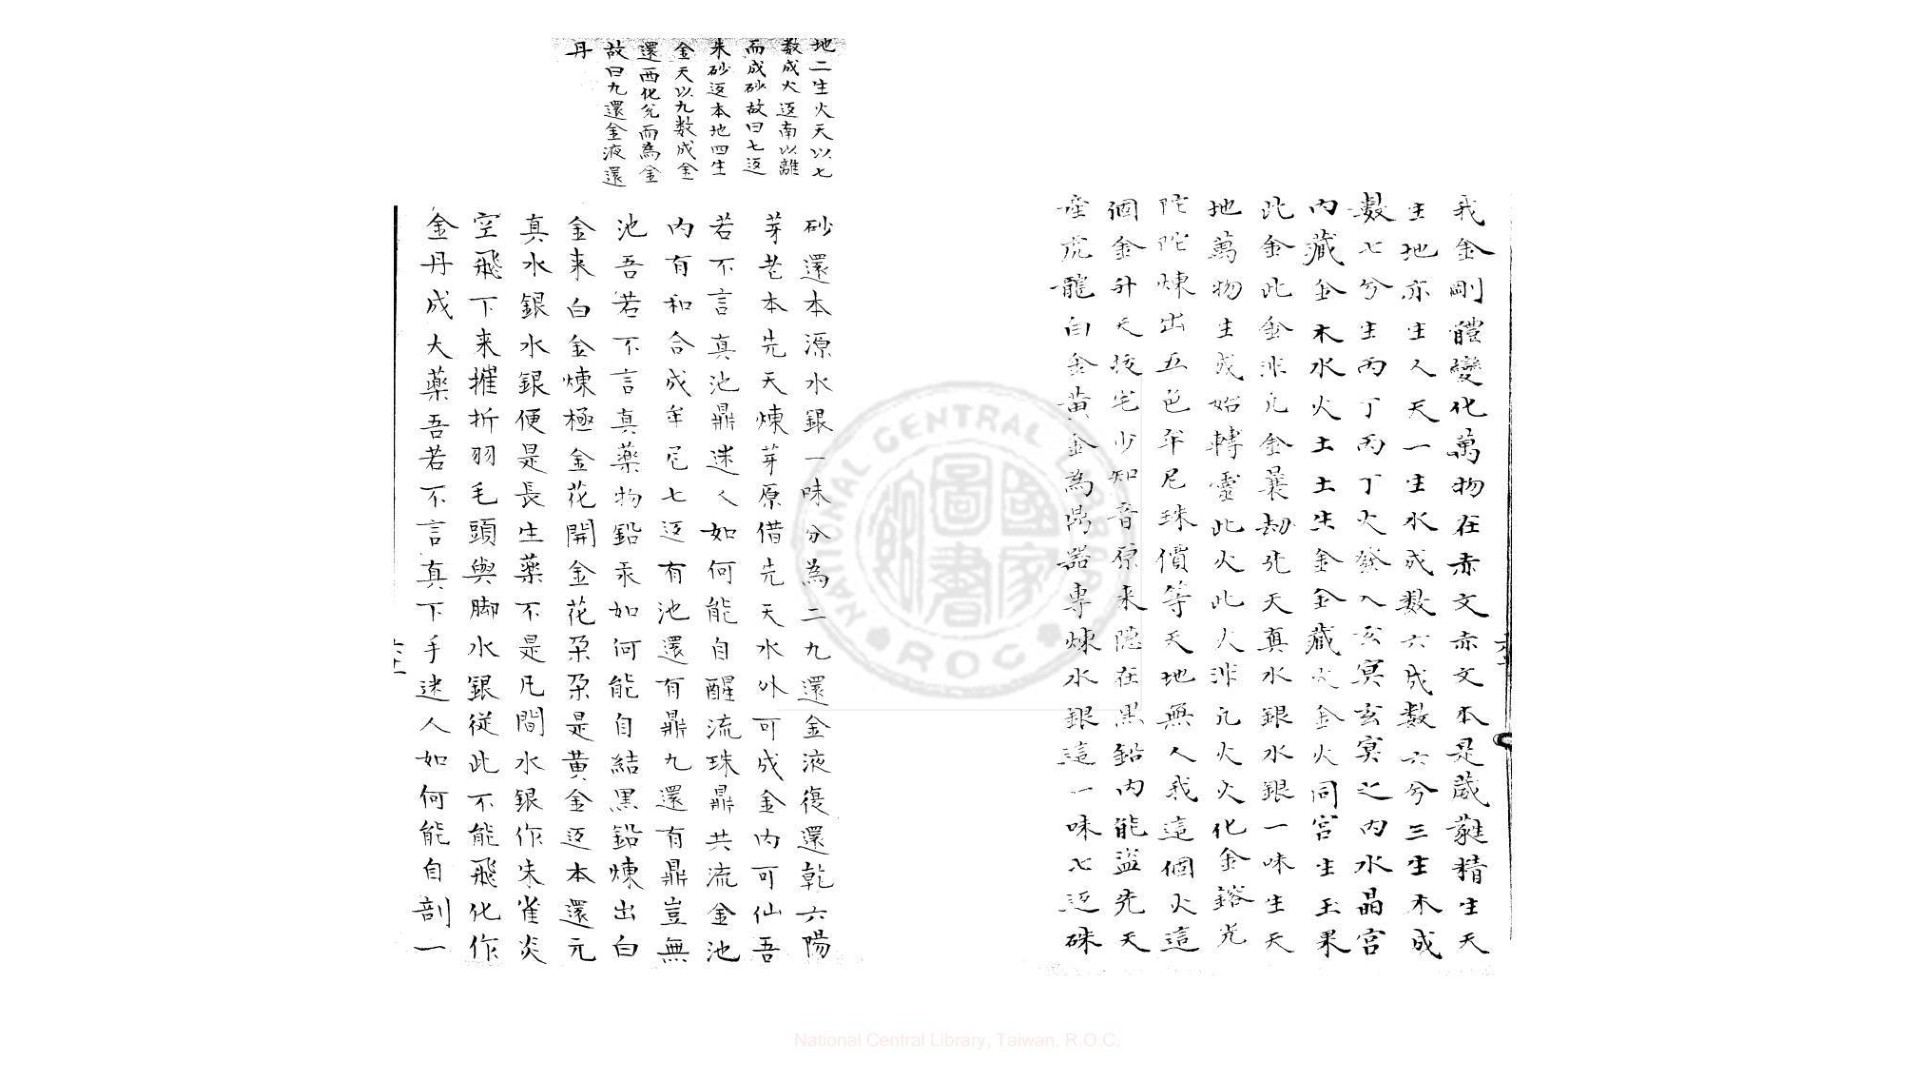 我金剛體變化萬物在赤文赤文本是葳蕤精生天
生地亦生人天一生水成数六成数六兮三生木成
數七兮生丙丁丙丁火發入玄冥玄冥之内水晶宮
内藏金木水火土土生金金藏火金火同宮生玉果
此金此金非凡金曩劫先天真水銀水銀一味生天
地萬物生成始轉靈此火此火非凡火火化金鎔光
陀陀煉出五色牟尼珠價等天地無人我這個火這
個金升天拔宅少知音原来隠在黒鉛内能盗先天
産虎龍白金黄金為鼎器專煉水銀這一味七返硃
砂還本源水銀一味分為二九還金液復還乾六陽
芽老本先天煉芽原借先天水外可成金内可仙吾
若不言真池鼎迷人如何能自醒流珠鼎共流金池
内有和合成牟尼七返有池還有鼎九還有鼎豈無
池吾若不言真藥物鉛汞如何能自結黒鉛煉出白
金来白金煉極金花開金花朶朶是黄金返本還元
真水銀水銀便是長生藥不是凡間水銀作朱雀炎
空飛下来摧折羽毛頭與脚水銀從此不能飛化作
金丹成大藥吾若不言真下手迷人如何能自剖一
地二生火天以七
数成火返南以離
而成砂故曰七返
朱砂返本地四生
金天以九数成金
還西化兊而為金
故曰九還金液還
丹
National Central Library, Taiwan, R.O.C.
NATIONAL CENTRAL LIBRARY
ROC
國家圖書館